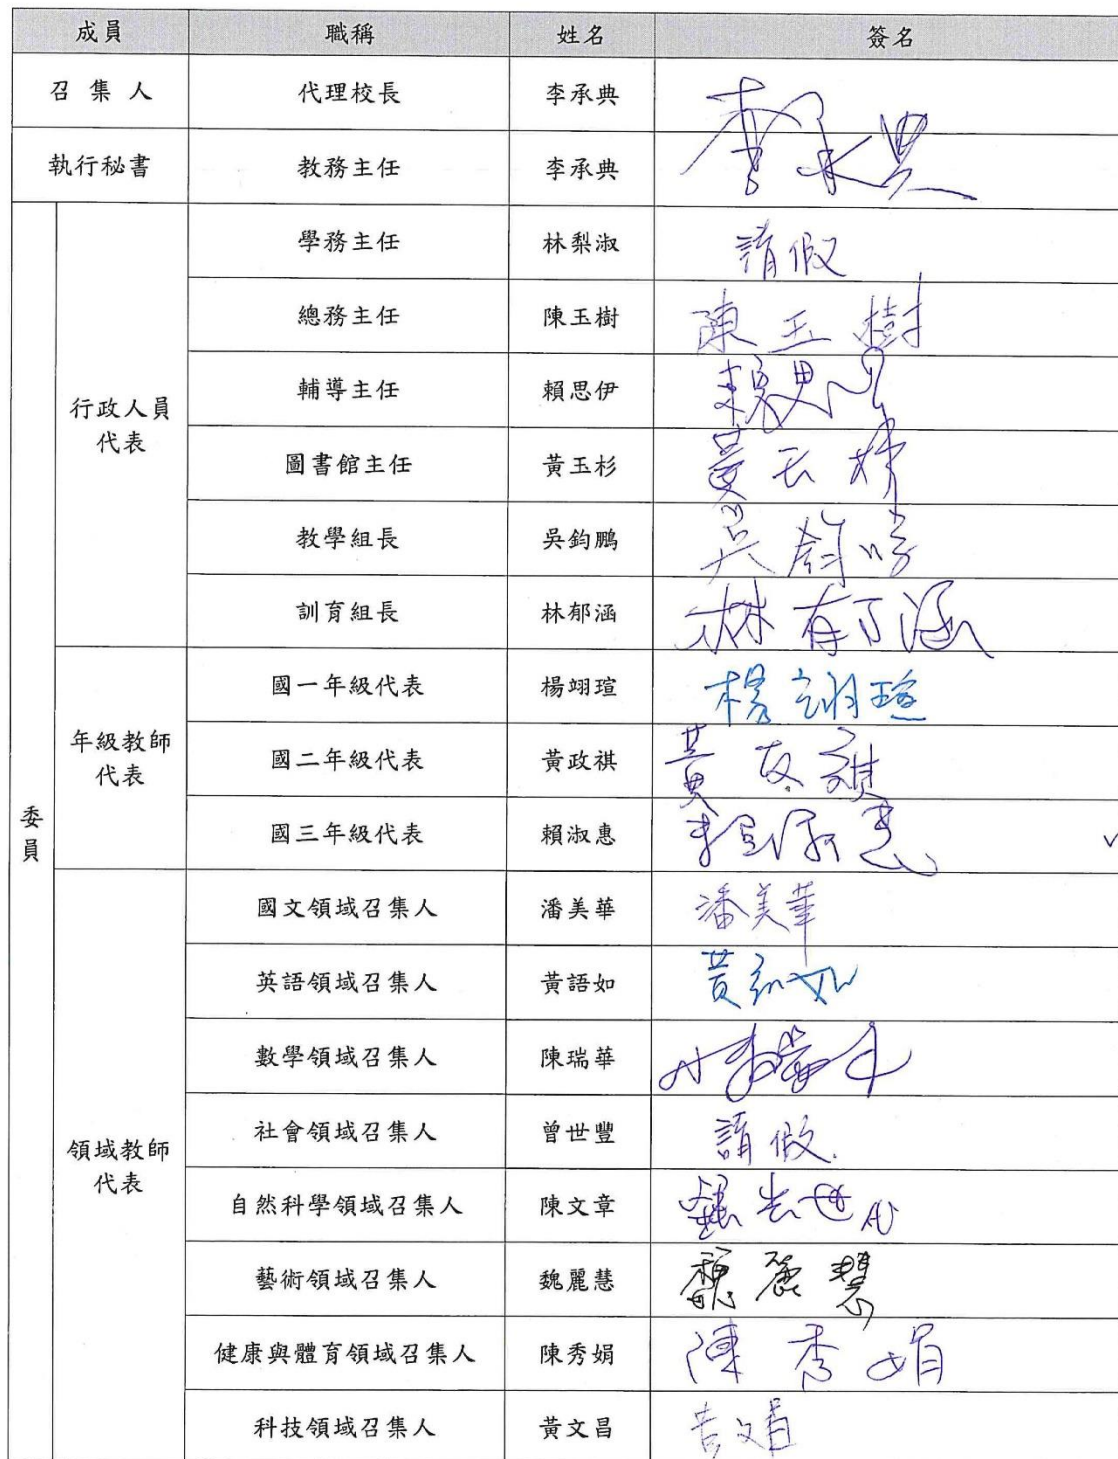 成員 職稱 姓名 簽名
召集人 代理校長 李承典 李承典
執行秘書 教務主任 李承典
委員
行政人員代表
學務主任 林梨淑 請假
總務主任 陳玉樹 陳玉樹
輔導主任 賴思伊 賴思伊
圖書館主任 黃玉杉 黃玉杉
教學組長 吳鈞鵬 吳鈞鵬
訓育組長 林郁涵 林郁涵
年級教師代表
國一年級代表 楊翊瑄 楊翊瑄
國二年級代表 黃政祺 黃政祺
國三年級代表 賴淑惠 賴淑惠
領域教師代表
國文領域召集人 潘美華 潘美華
英語領域召集人 黃語如 黃語如
數學領域召集人 陳瑞華 陳瑞華
社會領域召集人 曾世豐 請假
自然科學領域召集人 陳文章
藝術領域召集人 魏麗慧 魏麗慧
健康與體育領域召集人 陳秀娟 陳秀娟
科技領域召集人 黃文昌